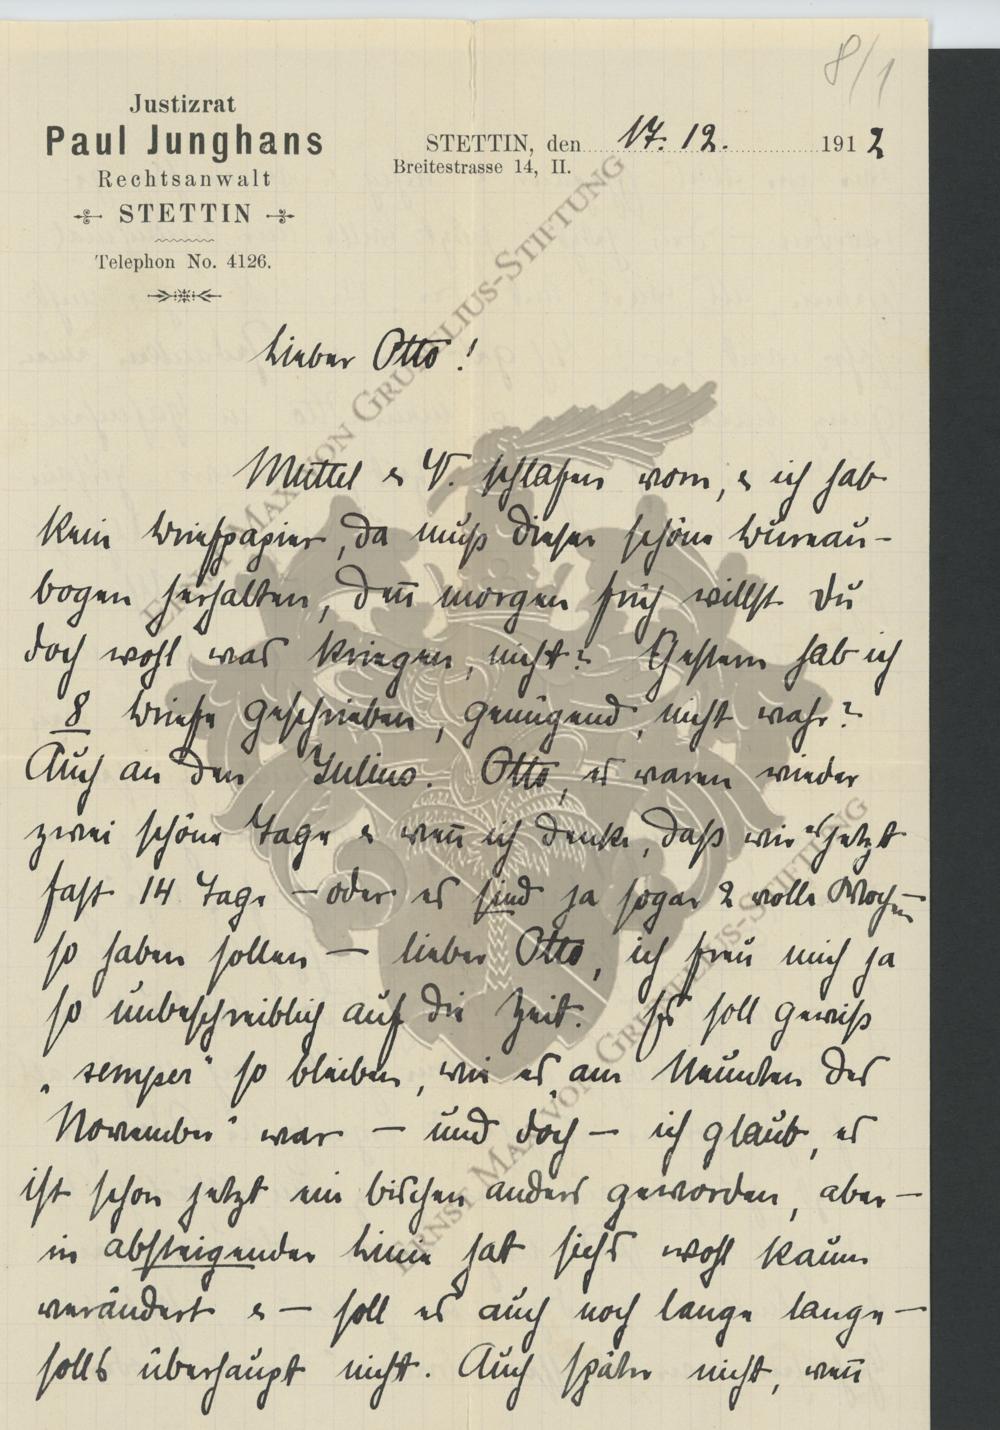 8/1
Justizrat
Paul Junghans
Rechtsanwalt
STETTIN
Telephon No. 4126.
STETTIN, den 17. 12. 1912
Breitestrasse 14, II.
Lieber Otto!
Muttel & V. schlafen vorn, & ich hab
kein Briefpapier, da muß dieser schöne Büreau-
bogen herhalten, den̄ morgen früh willst Du
doch wohl was kriegen, nicht? Gestern hab ich
8 Briefe geschrieben, genügend, nicht wahr?
Auch an den Julius. Otto, es waren wieder
zwei schöne Tage & wen̄ ich denke, daß wir es jetzt
fast 14 Tage – oder es sind ja sogar 2 volle Wochen –
so haben sollen – lieber Otto, ich freu mich ja
so unbeschreiblich auf die Zeit. Es soll gewiß
„semper" so bleiben, wie es „am Neunten des
November" war – und doch – ich glaub, es
ist schon jetzt ein bischen anders geworden, aber –
in absteigender Linie hat sichs wohl kaum
verändert & – soll es auch noch lange lange –
solls überhaupt nicht. Auch später nicht, wen̄
ERNST MAX VON GRUNELIUS-STIFTUNG
ERNST MAX VON GRUNELIUS-STIFTUNG